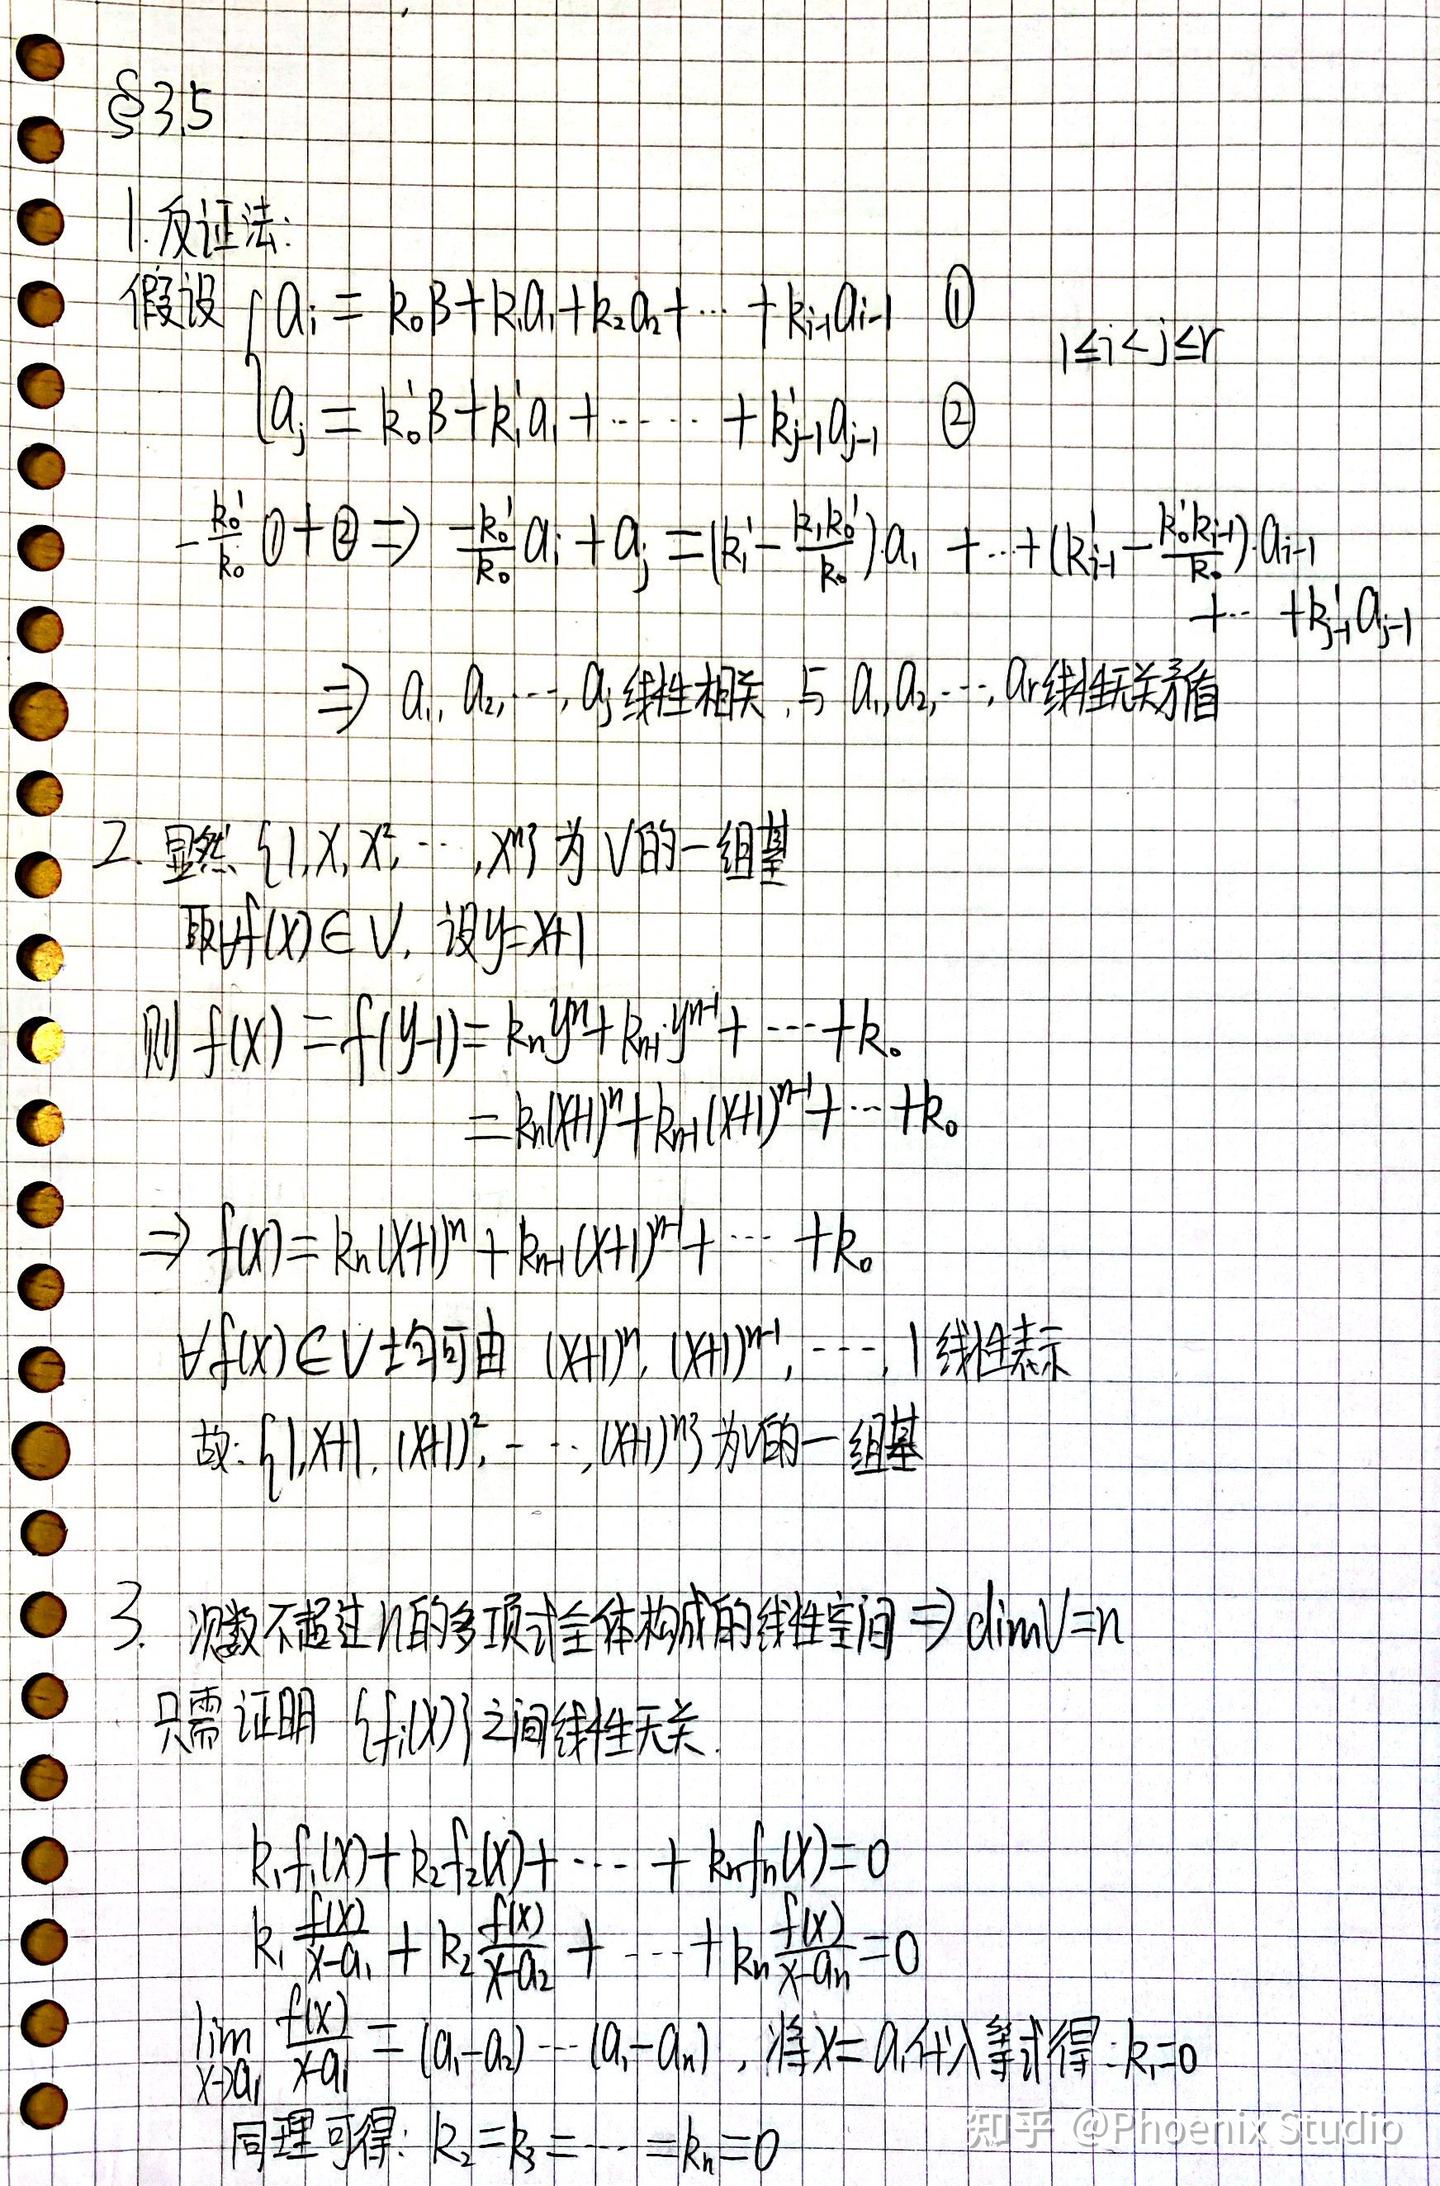 §3.5
1. 反证法:
假设 { a_i = k_0β+k_1a_1+k_2a_2+⋯+k_{i-1}a_{i-1} ①
1≤i<j≤r
a_j = k_0'β+k_1'a_1+⋯⋯+k_{j-1}'a_{j-1} ②
-\frac{k_0'}{k_0}①+②⇒ \frac{-k_0'}{k_0}a_i+a_j=(k_1'-\frac{k_1k_0'}{k_0})·a_1+⋯+(k_{i-1}'-\frac{k_0'k_{i-1}}{k_0})·a_{i-1}
+⋯+k_{j-1}'a_{j-1}
⇒ a_1, a_2, ⋯, a_j线性相关, 与 a_1,a_2,⋯,a_r线性无关矛盾
2. 显然 {1,x,x²,⋯,x^n} 为V的一组基
取∀f(x)∈V, 设y=x+1
则 f(x)=f(y-1)=k_ny^n+k_{n-1}·y^{n-1}+⋯+k_0
=k_n(x+1)^n+k_{n-1}(x+1)^{n-1}+⋯+k_0
⇒ f(x)=k_n(x+1)^n+k_{n-1}(x+1)^{n-1}+⋯+k_0
∀f(x)∈V均可由 (x+1)^n, (x+1)^{n-1}, ⋯, 1 线性表示
故: {1,x+1, (x+1)², ⋯, (x+1)^n}为V的一组基
3. 次数不超过n的多项式全体构成的线性空间⇒dimV=n
只需证明 {f_i(x)}之间线性无关.
k_1f_1(x)+k_2f_2(x)+⋯+k_nf_n(x)=0
k_1\frac{f(x)}{x-a_1}+k_2\frac{f(x)}{x-a_2}+⋯+k_n\frac{f(x)}{x-a_n}=0
\lim_{x→a_1}\frac{f(x)}{x-a_1}=(a_1-a_2)⋯(a_1-a_n), 将x=a_1代入等式得: k_1=0
同理可得: k_2=k_3=⋯=k_n=0
知乎 @Phoenix Studio